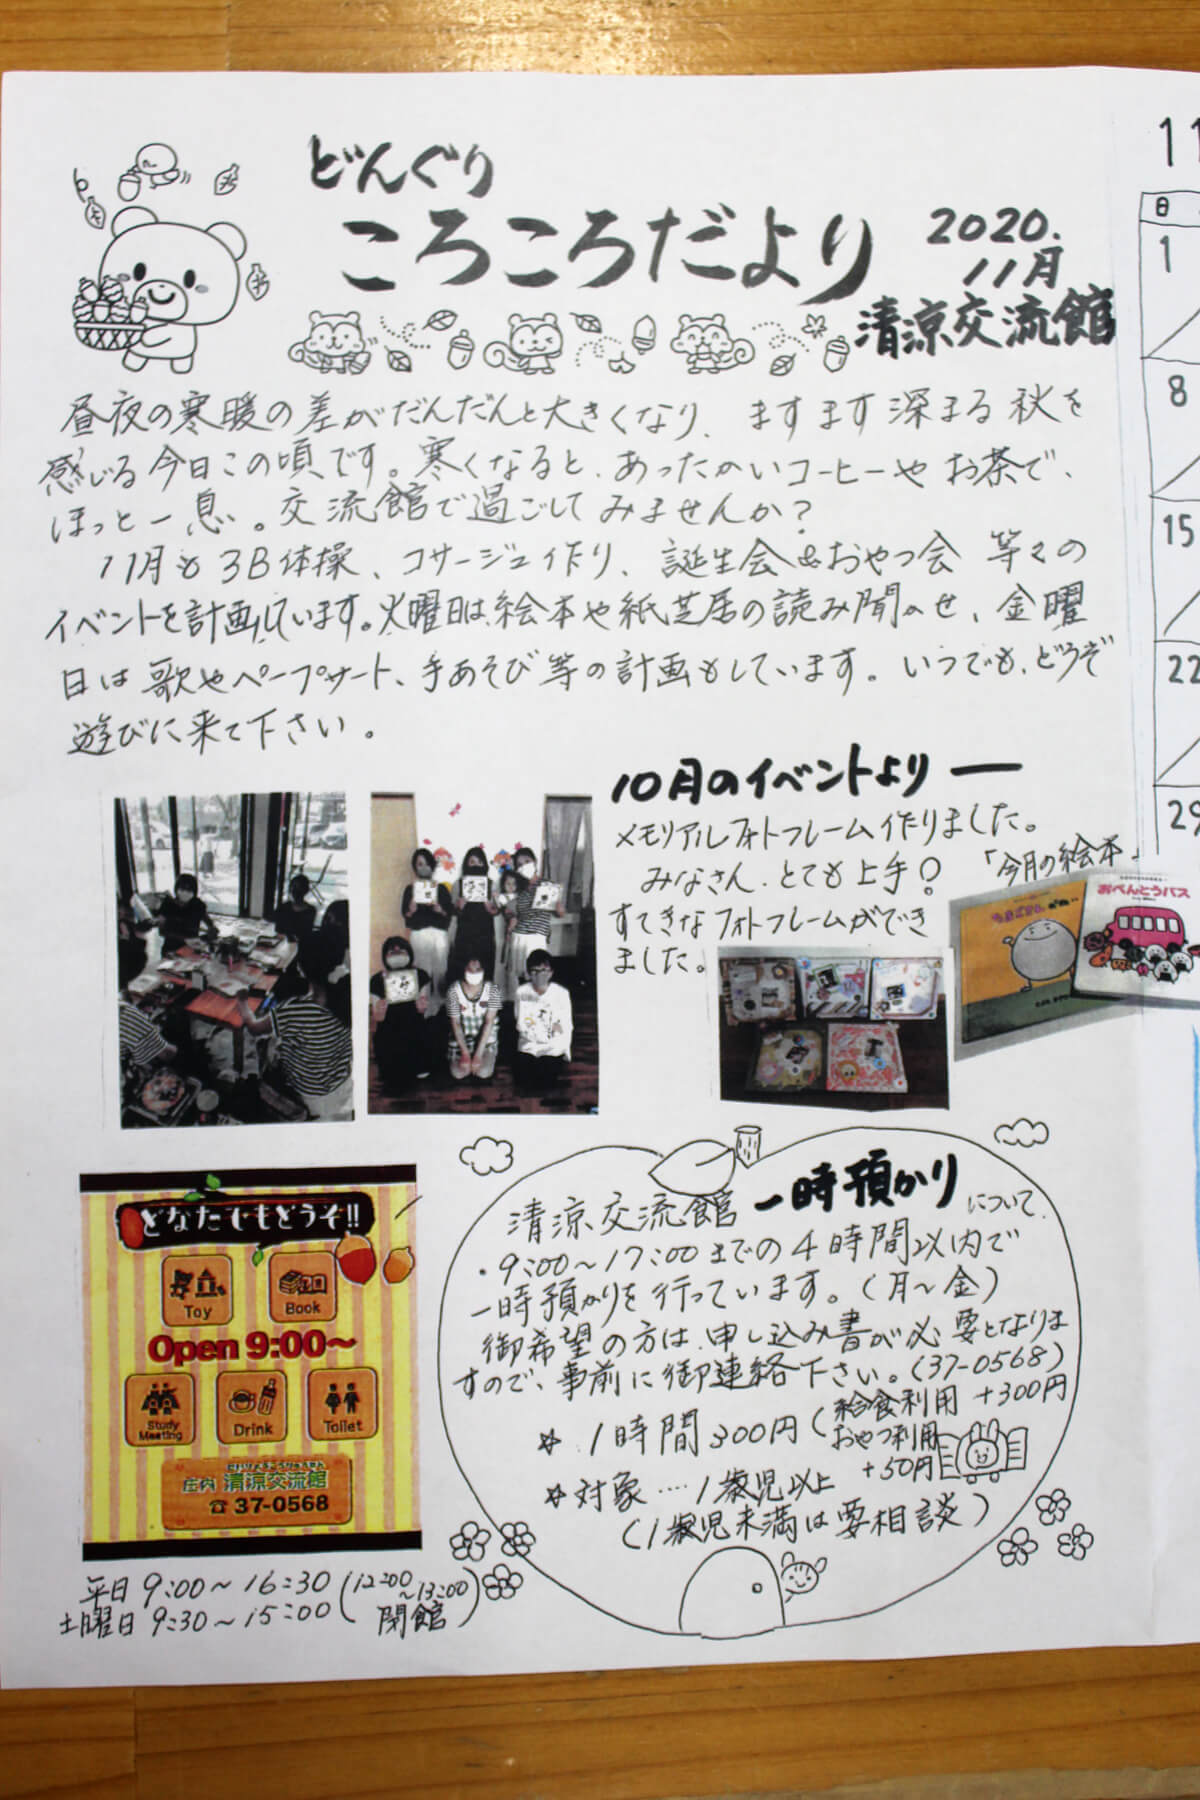 どんぐり
ころころだより
2020.
11月
清涼交流館
昼夜の寒暖の差がだんだんと大きくなり、ますます深まる秋を
感じる今日この頃です。寒くなると、あったかいコーヒーやお茶で、
ほっと一息。交流館で過ごしてみませんか?
11月も3B体操、コサージュ作り、誕生会&おやつ会 等々の
イベントを計画しています。火曜日は絵本や紙芝居の読み聞かせ、金曜
日は歌やペープサート、手あそび等の計画もしています。いつでも、どうぞ
遊びに来て下さい。
10月のイベントより ー
メモリアルフォトフレーム作りました。
みなさん、とても上手!
すてきなフォトフレームができ
ました。
「今月の絵本」
おべんとうバス
どなたでもどうぞ!!
Toy
Book
Open 9:00～
Study Meeting
Drink
Toilet
庄内 清涼交流館
☎37-0568
平日 9:00～16:30
土曜日 9:30～15:00
(12:00～13:00 閉館)
清涼交流館 一時預かり について
・9:00～17:00までの4時間以内で
一時預かりを行っています。(月～金)
御希望の方は、申し込み書が必要となりま
すので、事前に御連絡下さい。(37-0568)
☆ 1時間 300円 (給食利用 +300円
おやつ利用
+50円
☆ 対象 …. 1歳児以上
(1歳児未満は要相談)
11
日
1
8
15
22
29